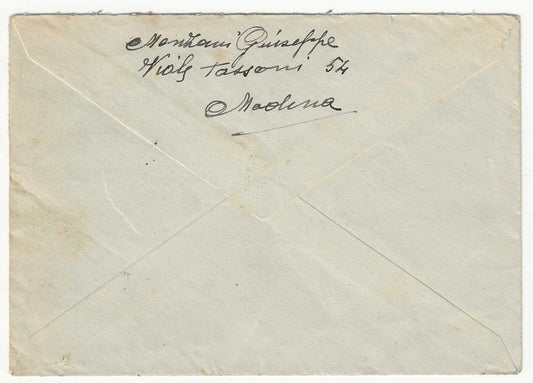 Montani Giuseppe
Viale Tassoni 54
Modena